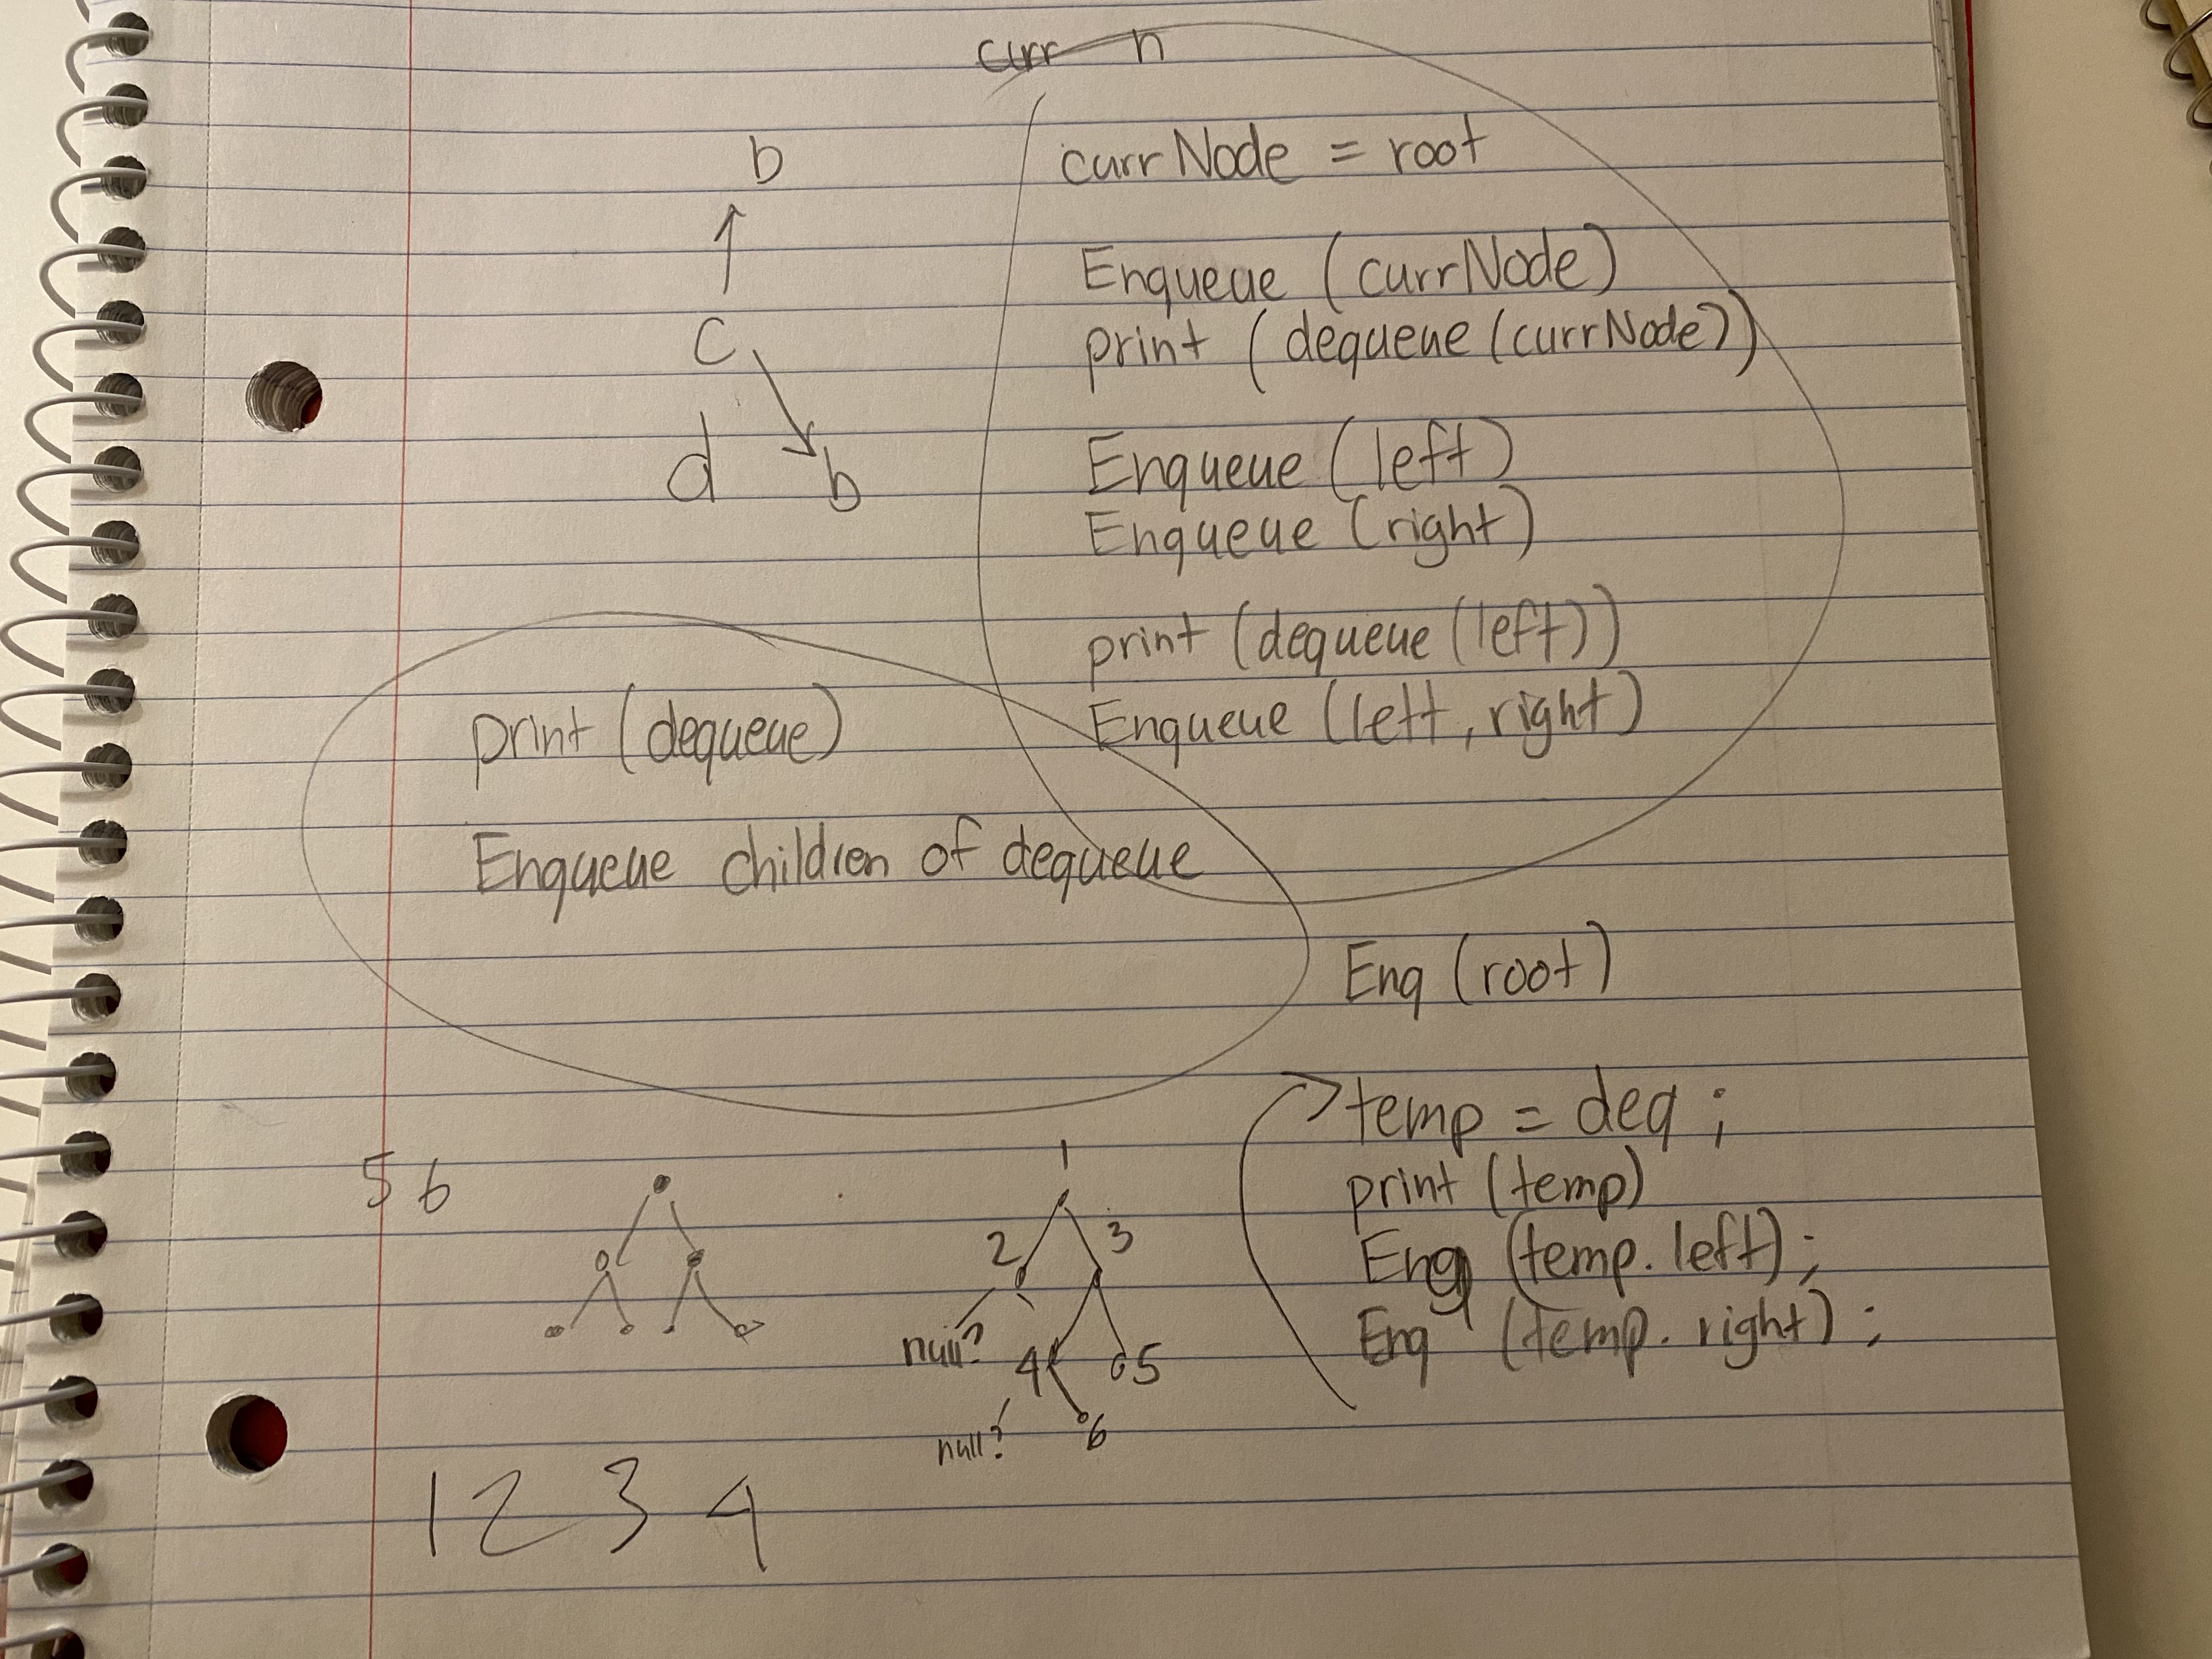 curr n
b
currNode = root
Enqueue (currNode)
c
print (dequeue (currNode))
d b
Enqueue (left)
Enqueue (right)
print (dequeue (left))
Enqueue (left, right)
print (dequeue)
Enqueue children of dequeue
Enq (root)
temp = deq ;
print (temp)
Enq (temp. left) ;
Enq (temp. right) ;
5 6
1
2 3
null? 4 5
null? 6
1 2 3 4